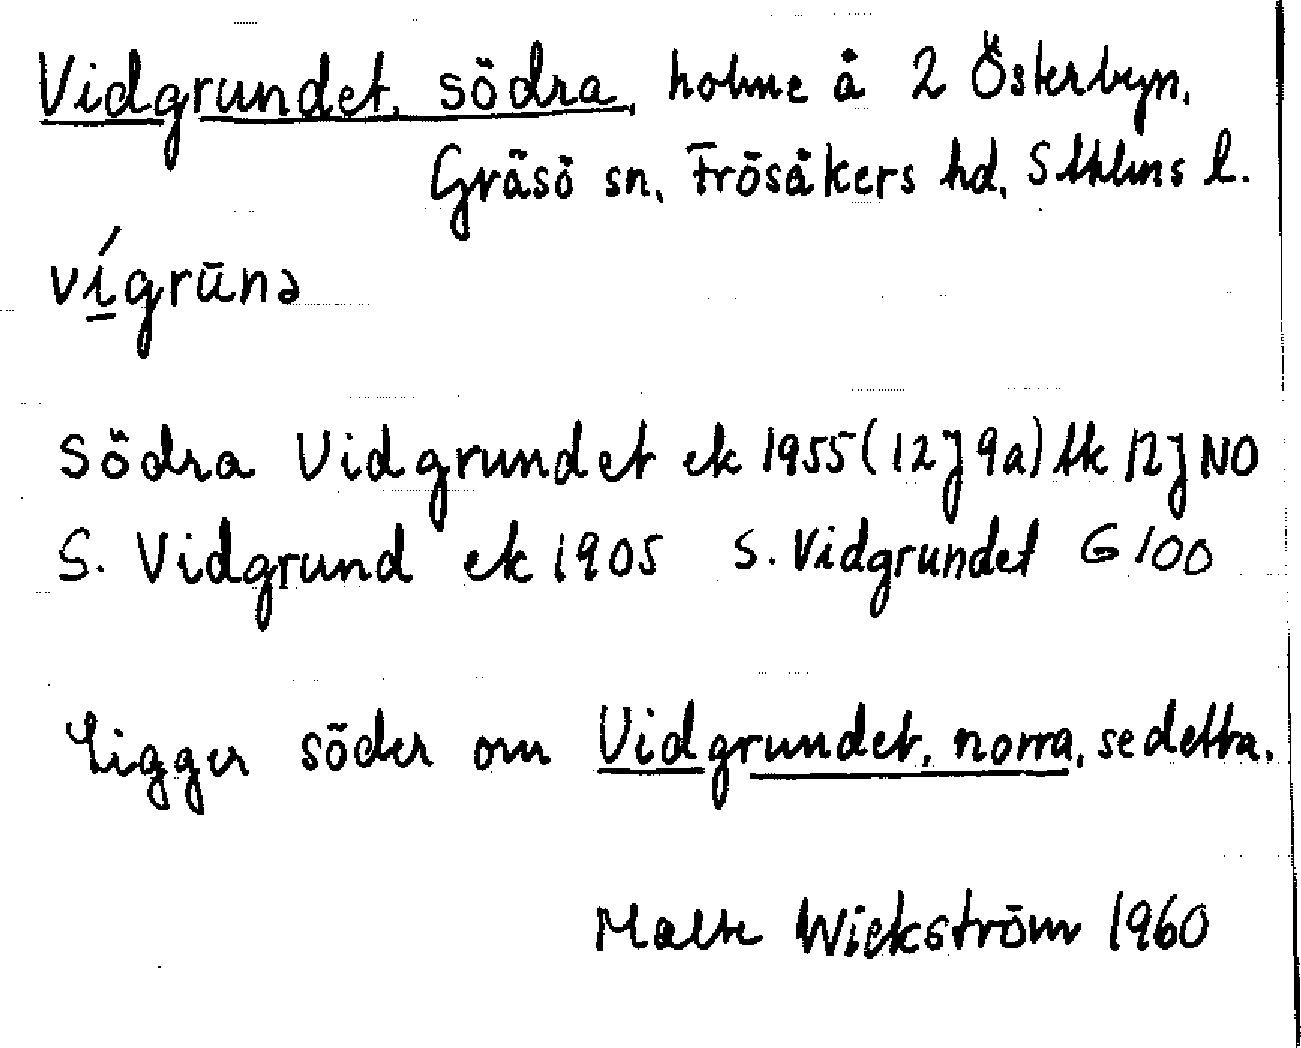 Vidgrundet, södra, holme å 2 Österbyn,
Gräsö sn, Frösåkers hd, Sthlms l.
ví̱grūnə
Södra Vidgrundet ek 1955 (12J 9a) tk 12J NO
S. Vidgrund ek 1905 S. Vidgrundet G 100
Ligger söder om Vidgrundet, norra, se detta.
Malte Wickström 1960